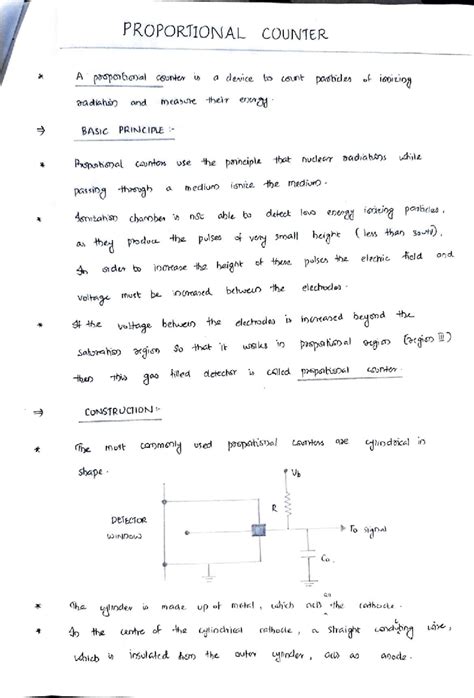 PROPORTIONAL COUNTER
* A proportional counter is a device to count particles of ionizing
radiation and measure their energy.
⇒ BASIC PRINCIPLE :-
* Proportional counters use the principle that nuclear radiations while
passing through a medium ionize the medium.
* Ionization chamber is not able to detect low energy ionizing particles,
as they produce the pulses of very small height (less than
In order to increase the height of these pulses the electric field and
voltage must be increased between the electrodes.
* If the voltage between the electrodes is increased beyond the
saturation region so that it works in proportional region (region III)
then this gas filled detector is called proportional counter.
⇒ CONSTRUCTION :-
* The most commonly used proportional counters are cylindrical in
shape.
Vb
R
DETECTOR
WINDOW
To signal
Co
* The cylinder is made up of metal, which acts as the cathode.
* In the centre of the cylindrical cathode, a straight conducting wire,
which is insulated from the outer cylinder, acts as anode.